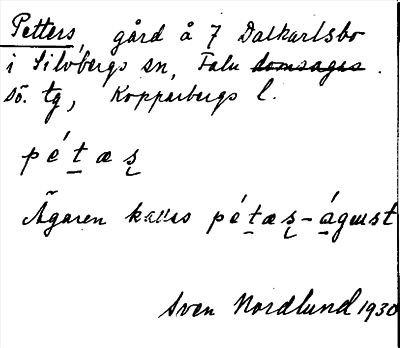 Petters, gård å 7 Dalkarlsbo
i Silvbergs sn, Falu domsagas.
sö. tg, Kopparbergs l.
pétæs̨
Ägaren kallas pétæs̨-águst
Sven Nordlund 1930